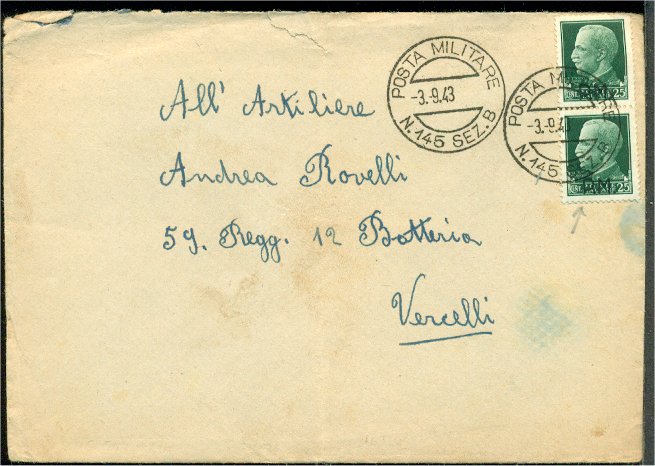 POSTA MILITARE
-3.9.43
N.145 SEZ.B
POSTA MILITARE
-3.9.43
N.145 SEZ.B
25
25
All' Artiliere
Andrea Rovelli
59. Regg. 12 Batteria
Vercelli